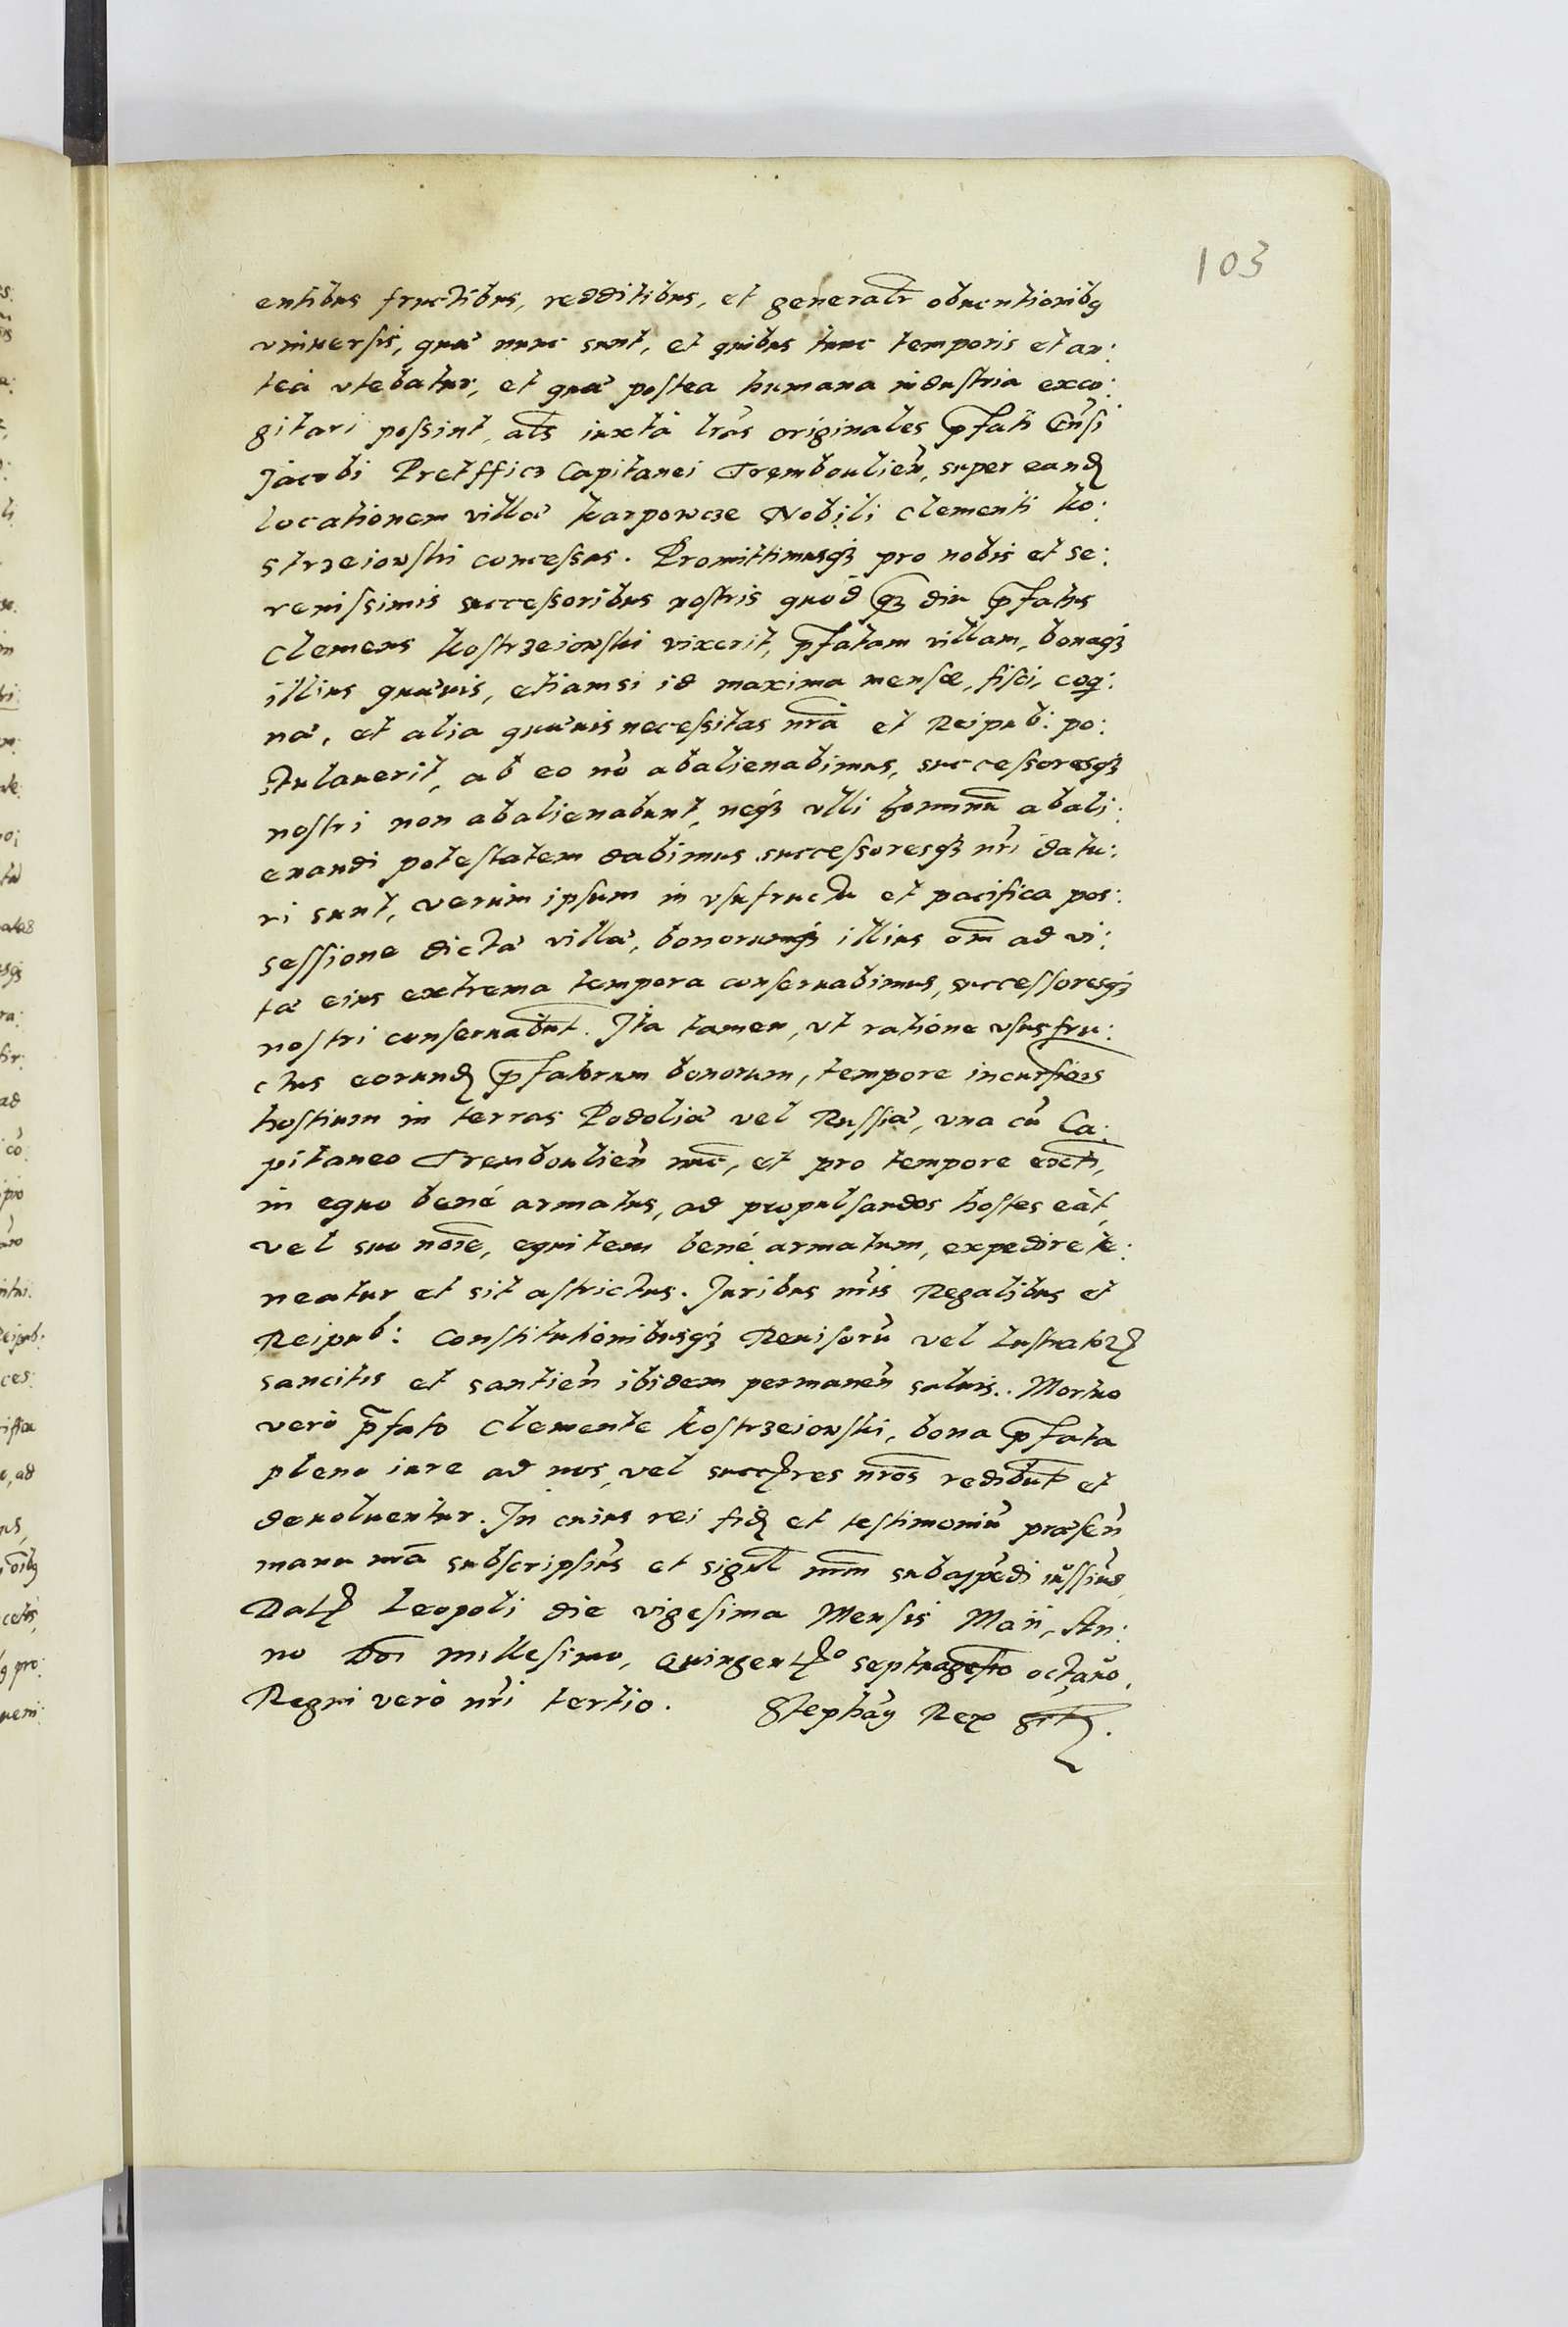 103
entibus fructibus, redditibus, et generalr̃ obuentionibꝰ
vniuersis, quæ nunc sunt, et quibus tunc temporis et an:
teà vtebatur, et quæ postea humana industria exco:
gitari possint, als̃ iuxtà lr̃as originales p̃fati Gn̄si
Jacobi Pretfficz Capitanei Tręmboulieñ, super eandꝭ
locationem villæ Karpowcze Nobili Clementi Ko:
strzeiowski concessas. Promittimusqꝫ pro nobis et se:
renissimis successoribus nostris quod qꝫ diu p̃fatus
Clemens Kostrzeiowski vixerit, p̃fatam villam, bonaqꝫ
illius quæuis, etiamsi id maxima mensæ, fisci, coqi:
næ, et alia quæuis necessitas nr̃a et Reipub: po:
stulauerit, ab eo nō abalienabimus, successoresqꝫ
nostri non abalienabunt, neqꝫ vlli hominũ abali:
enandi potestatem dabimus successoresqꝫ nr̃i datu:
ri sunt, verum ipsum in vsufructu et pacifica pos:
sessione dictæ villæ, bonorumqꝫ illius om̃ ad vi:
tæ eius extrema tempora conseruabimus, successoresqꝫ
nostri conseruab̃nt. Ita tamen, vt ratione vsusfru:
ctus eorundꝭ p̃fatorum bonorum, tempore incursiõis
hostium in terras Podoliæ vel Russiæ, vna cũ Ca:
pitaneo Tremboulieñ nũc, et pro tempore exñti,
in equo benè armatus, ad propulsandos hostes eat,
vel suo nõie, equitem benè armatum, expedire te:
neatur et sit astrictus. Juribus nr̃is Regalibus et
Reipub: Constitutionibusqꝫ Reuisorũ vel Lustratorꝝ
sancitis et santieñ ibidem permaneñ saluis. Mortuo
verò p̃fato Clemente Kostrzeiowski, bona p̃fata
pleno iure ad nos, vel succꝭres nr̃os redib̃nt et
deuoluentur. In cuius rei fidꝭ et testimoniũ præseñ
manu nr̃a subscripsim̃s et sigill̃ nr̃m subappẽdi iussim̃s
Datꝭ Leopoli die vigesima Mensis Maij, An:
no Dñi Millesimo, Quingentꝭo septuagesĩo octauo,
Regni verò nr̃i tertio. Stephañꝰ Rex sstꝭ.